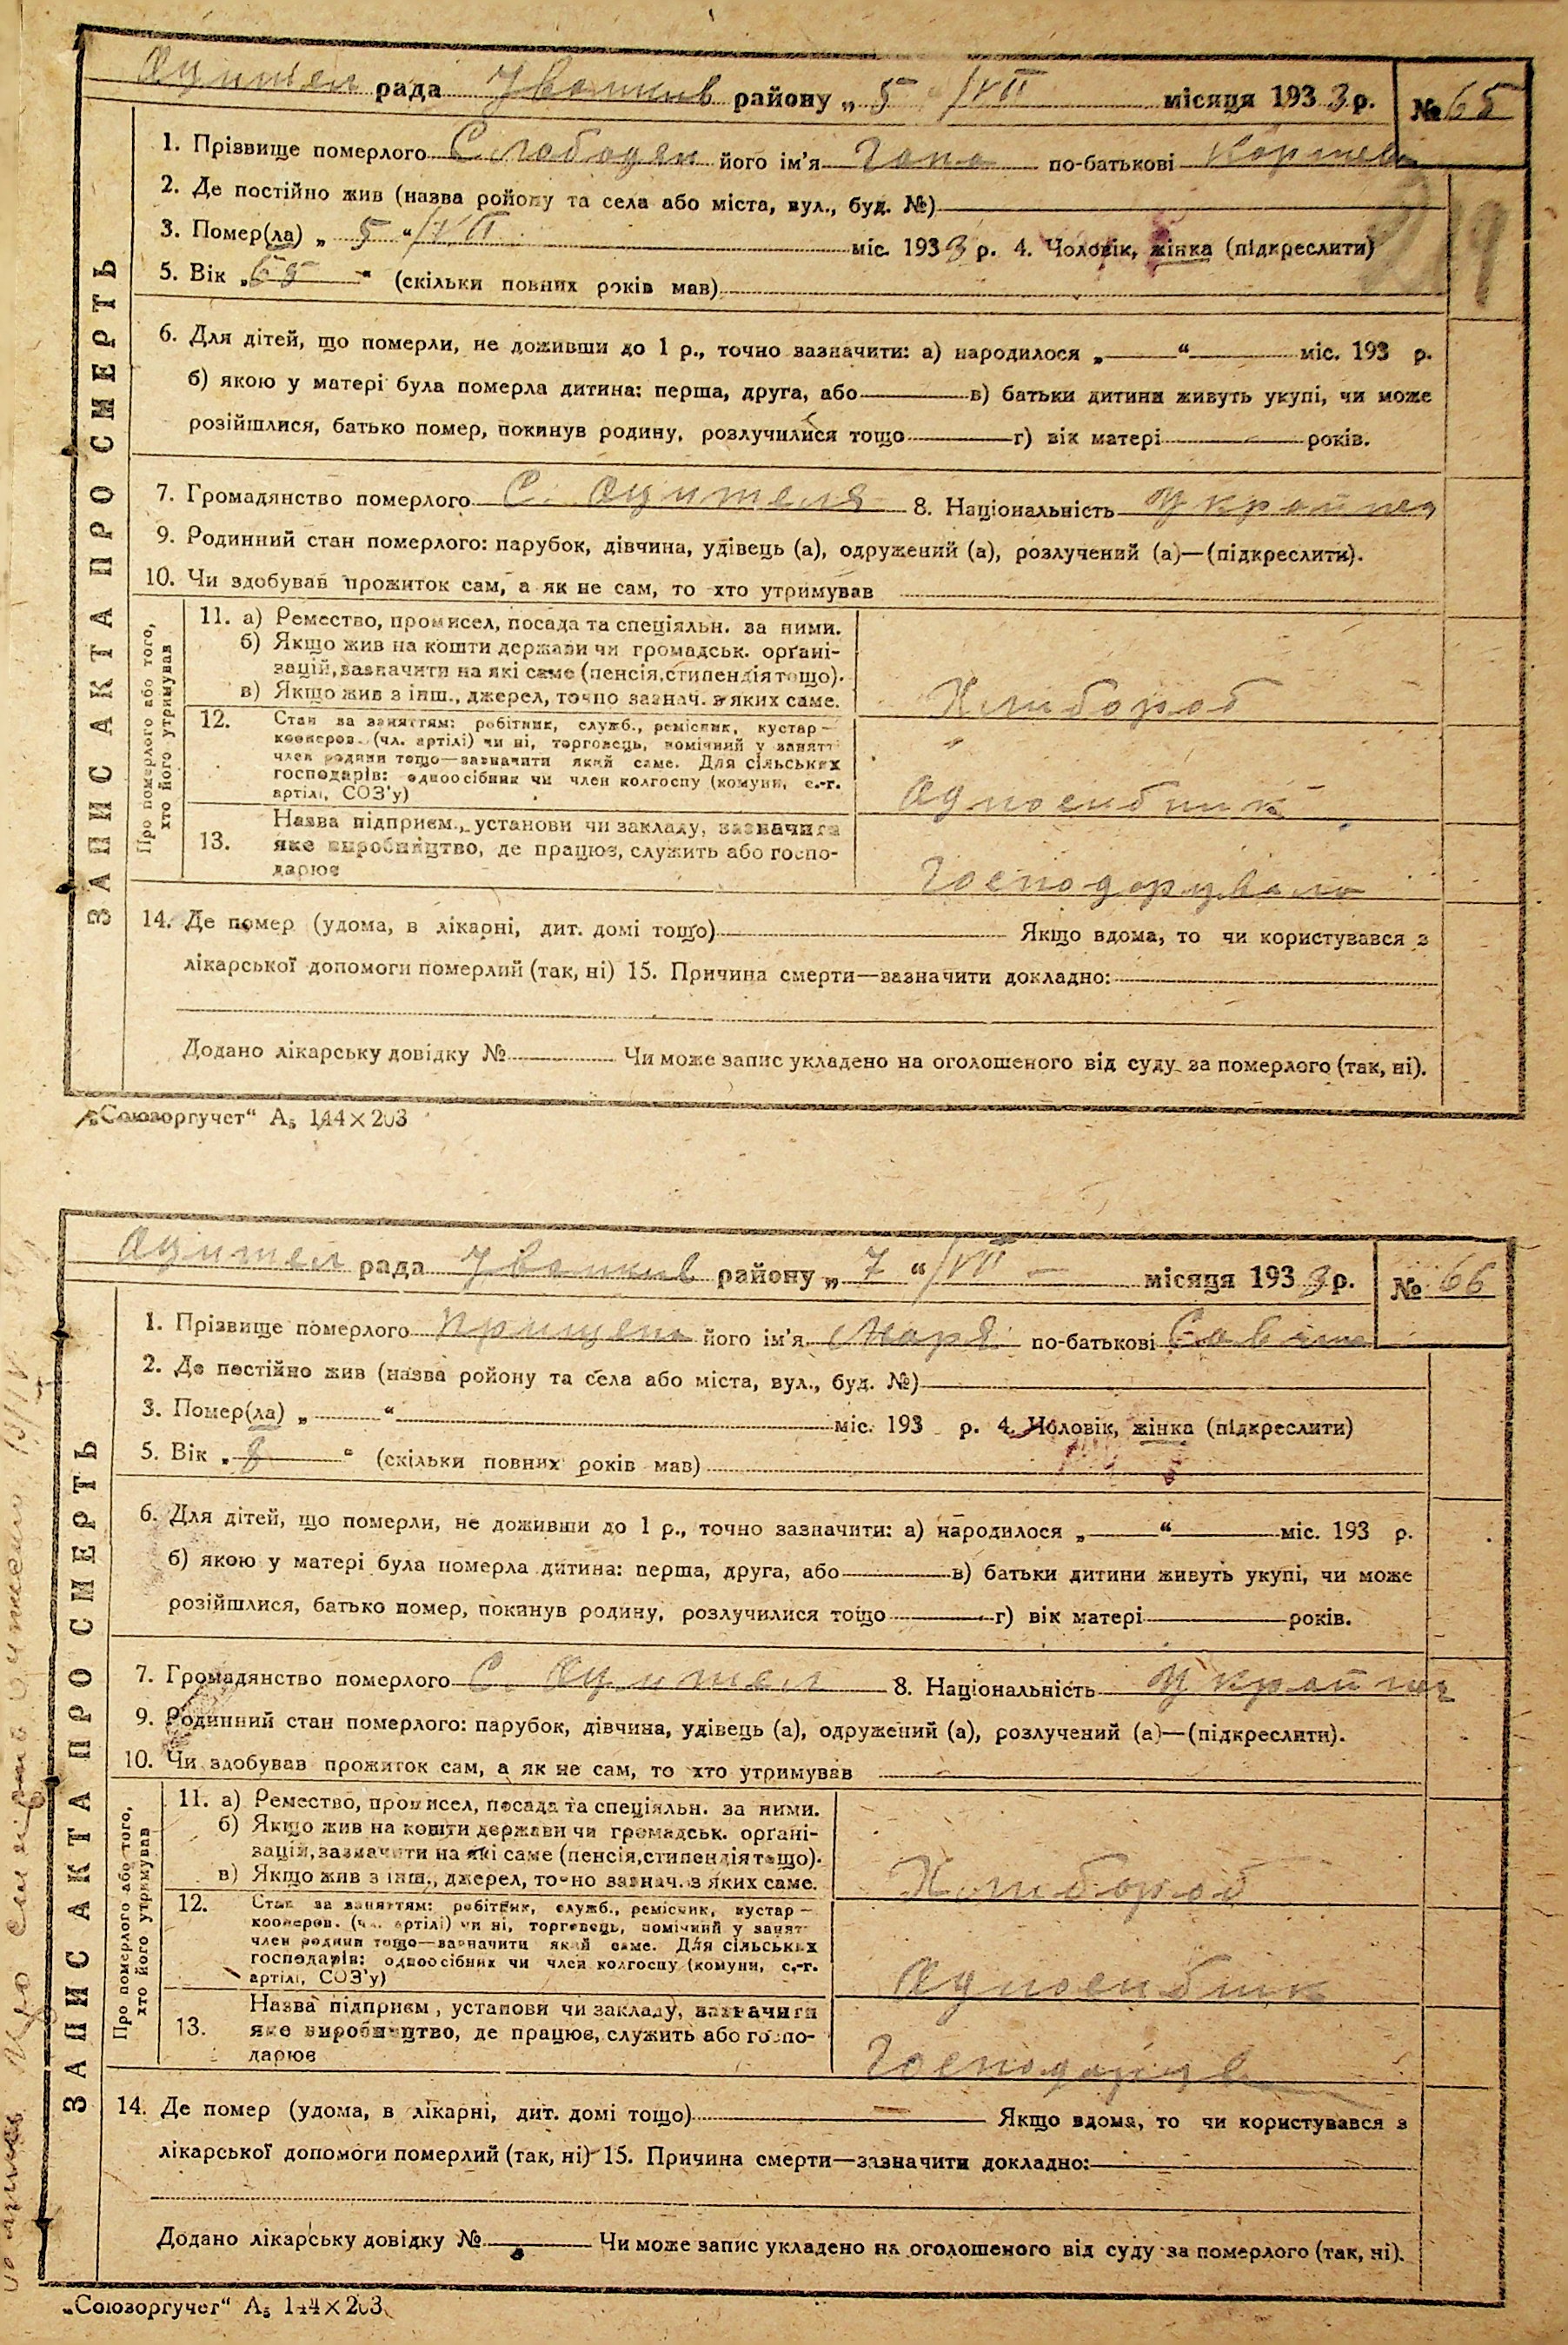 рада Іванків району „ 5 “ /VII місяця 1933 р. № 65
ЗАПИС АКТА ПРО СМЕРТЬ
1. Прізвище померлого Слободян його ім'я Гапа по-батькові
2. Де постійно жив (назва ройону та села або міста, вул., буд. №)
3. Помер(ла) „ 5 “ /VII міс. 1933 р. 4. Чоловік, жінка (підкреслити)
5. Вік „ 65 “ (скільки повних років мав)
6. Для дітей, що померли, не доживши до 1 р., точно зазначити: а) народилося „ “ міс. 193 р.
б) якою у матері була померла дитина: перша, друга, або в) батьки дитини живуть укупі, чи може
розійшлися, батько помер, покинув родину, розлучилися тощо г) вік матері років.
7. Громадянство померлого С. 8. Національність Украйнец
9. Родинний стан померлого: парубок, дівчина, удівець (а), одружений (а), розлучений (а)—(підкреслити).
10. Чи здобував прожиток сам, а як не сам, то хто утримував
Про померлого або того, хто його утримував
11. а) Ремество, промисел, посада та спеціяльн. за ними.
б) Якщо жив на кошти держави чи громадськ. орґані-
зацій, зазначити на які саме (пенсія, стипендія тощо).
в) Якщо жив з інш., джерел, точно зазнач. з яких саме. Хлибороб
12. Стан за заняттям: робітник, служб., ремісник, кустар—
кооперов. (чл. артілі) чи ні, торговець, помічний у занятт
член родини тощо—зазначити який саме. Для сільських
господарів: одноосібник чи член колгоспу (комуни, с.-г.
артілі, СОЗ'у) Одноенбник
13. Назва підприєм., установи чи закладу, зазначити
яке виробництво, де працює, служить або госпо-
дарює Господарувала
14. Де помер (удома, в лікарні, дит. домі тощо) Якщо вдома, то чи користувався з
лікарської допомоги померлий (так, ні) 15. Причина смерти—зазначити докладно:
Додано лікарську довідку № Чи може запис укладено на оголошеного від суду за померлого (так, ні).
„Союзоргучет“ А₅ 144×203
рада Іванків району „ 7 “ /VII місяця 1933 р. № 66
ЗАПИС АКТА ПРО СМЕРТЬ
1. Прізвище померлого його ім'я Маря по-батькові
2. Де постійно жив (назва ройону та села або міста, вул., буд. №)
3. Помер(ла) „ “ міс. 193 р. 4. Чоловік, жінка (підкреслити)
5. Вік „ 8 “ (скільки повних років мав)
6. Для дітей, що померли, не доживши до 1 р., точно зазначити: а) народилося „ “ міс. 193 р.
б) якою у матері була померла дитина: перша, друга, або в) батьки дитини живуть укупі, чи може
розійшлися, батько помер, покинув родину, розлучилися тощо г) вік матері років.
7. Громадянство померлого С. 8. Національність Украйнец
9. Родинний стан померлого: парубок, дівчина, удівець (а), одружений (а), розлучений (а)—(підкреслити).
10. Чи здобував прожиток сам, а як не сам, то хто утримував
Про померлого або того, хто його утримував
11. а) Ремество, промисел, посада та спеціяльн. за ними.
б) Якщо жив на кошти держави чи громадськ. орґані-
зацій, зазначити на які саме (пенсія, стипендія тощо).
в) Якщо жив з інш., джерел, точно зазнач. з яких саме. Хлибороб
12. Стан за заняттям: робітник, служб., ремісник, кустар—
кооперов. (чл. артілі) чи ні, торговець, помічний у занят
член родини тощо—зазначити який саме. Для сільських
господарів: одноосібник чи член колгоспу (комуни, с.-г.
артілі, СОЗ'у) Одноенбник
13. Назва підприєм., установи чи закладу, зазначити
яке виробництво, де працює, служить або госпо-
дарює
14. Де помер (удома, в лікарні, дит. домі тощо) Якщо вдома, то чи користувався з
лікарської допомоги померлий (так, ні) 15. Причина смерти—зазначити докладно:
Додано лікарську довідку № Чи може запис укладено на оголошеного від суду за померлого (так, ні).
„Союзоргучет“ А₅ 144×203